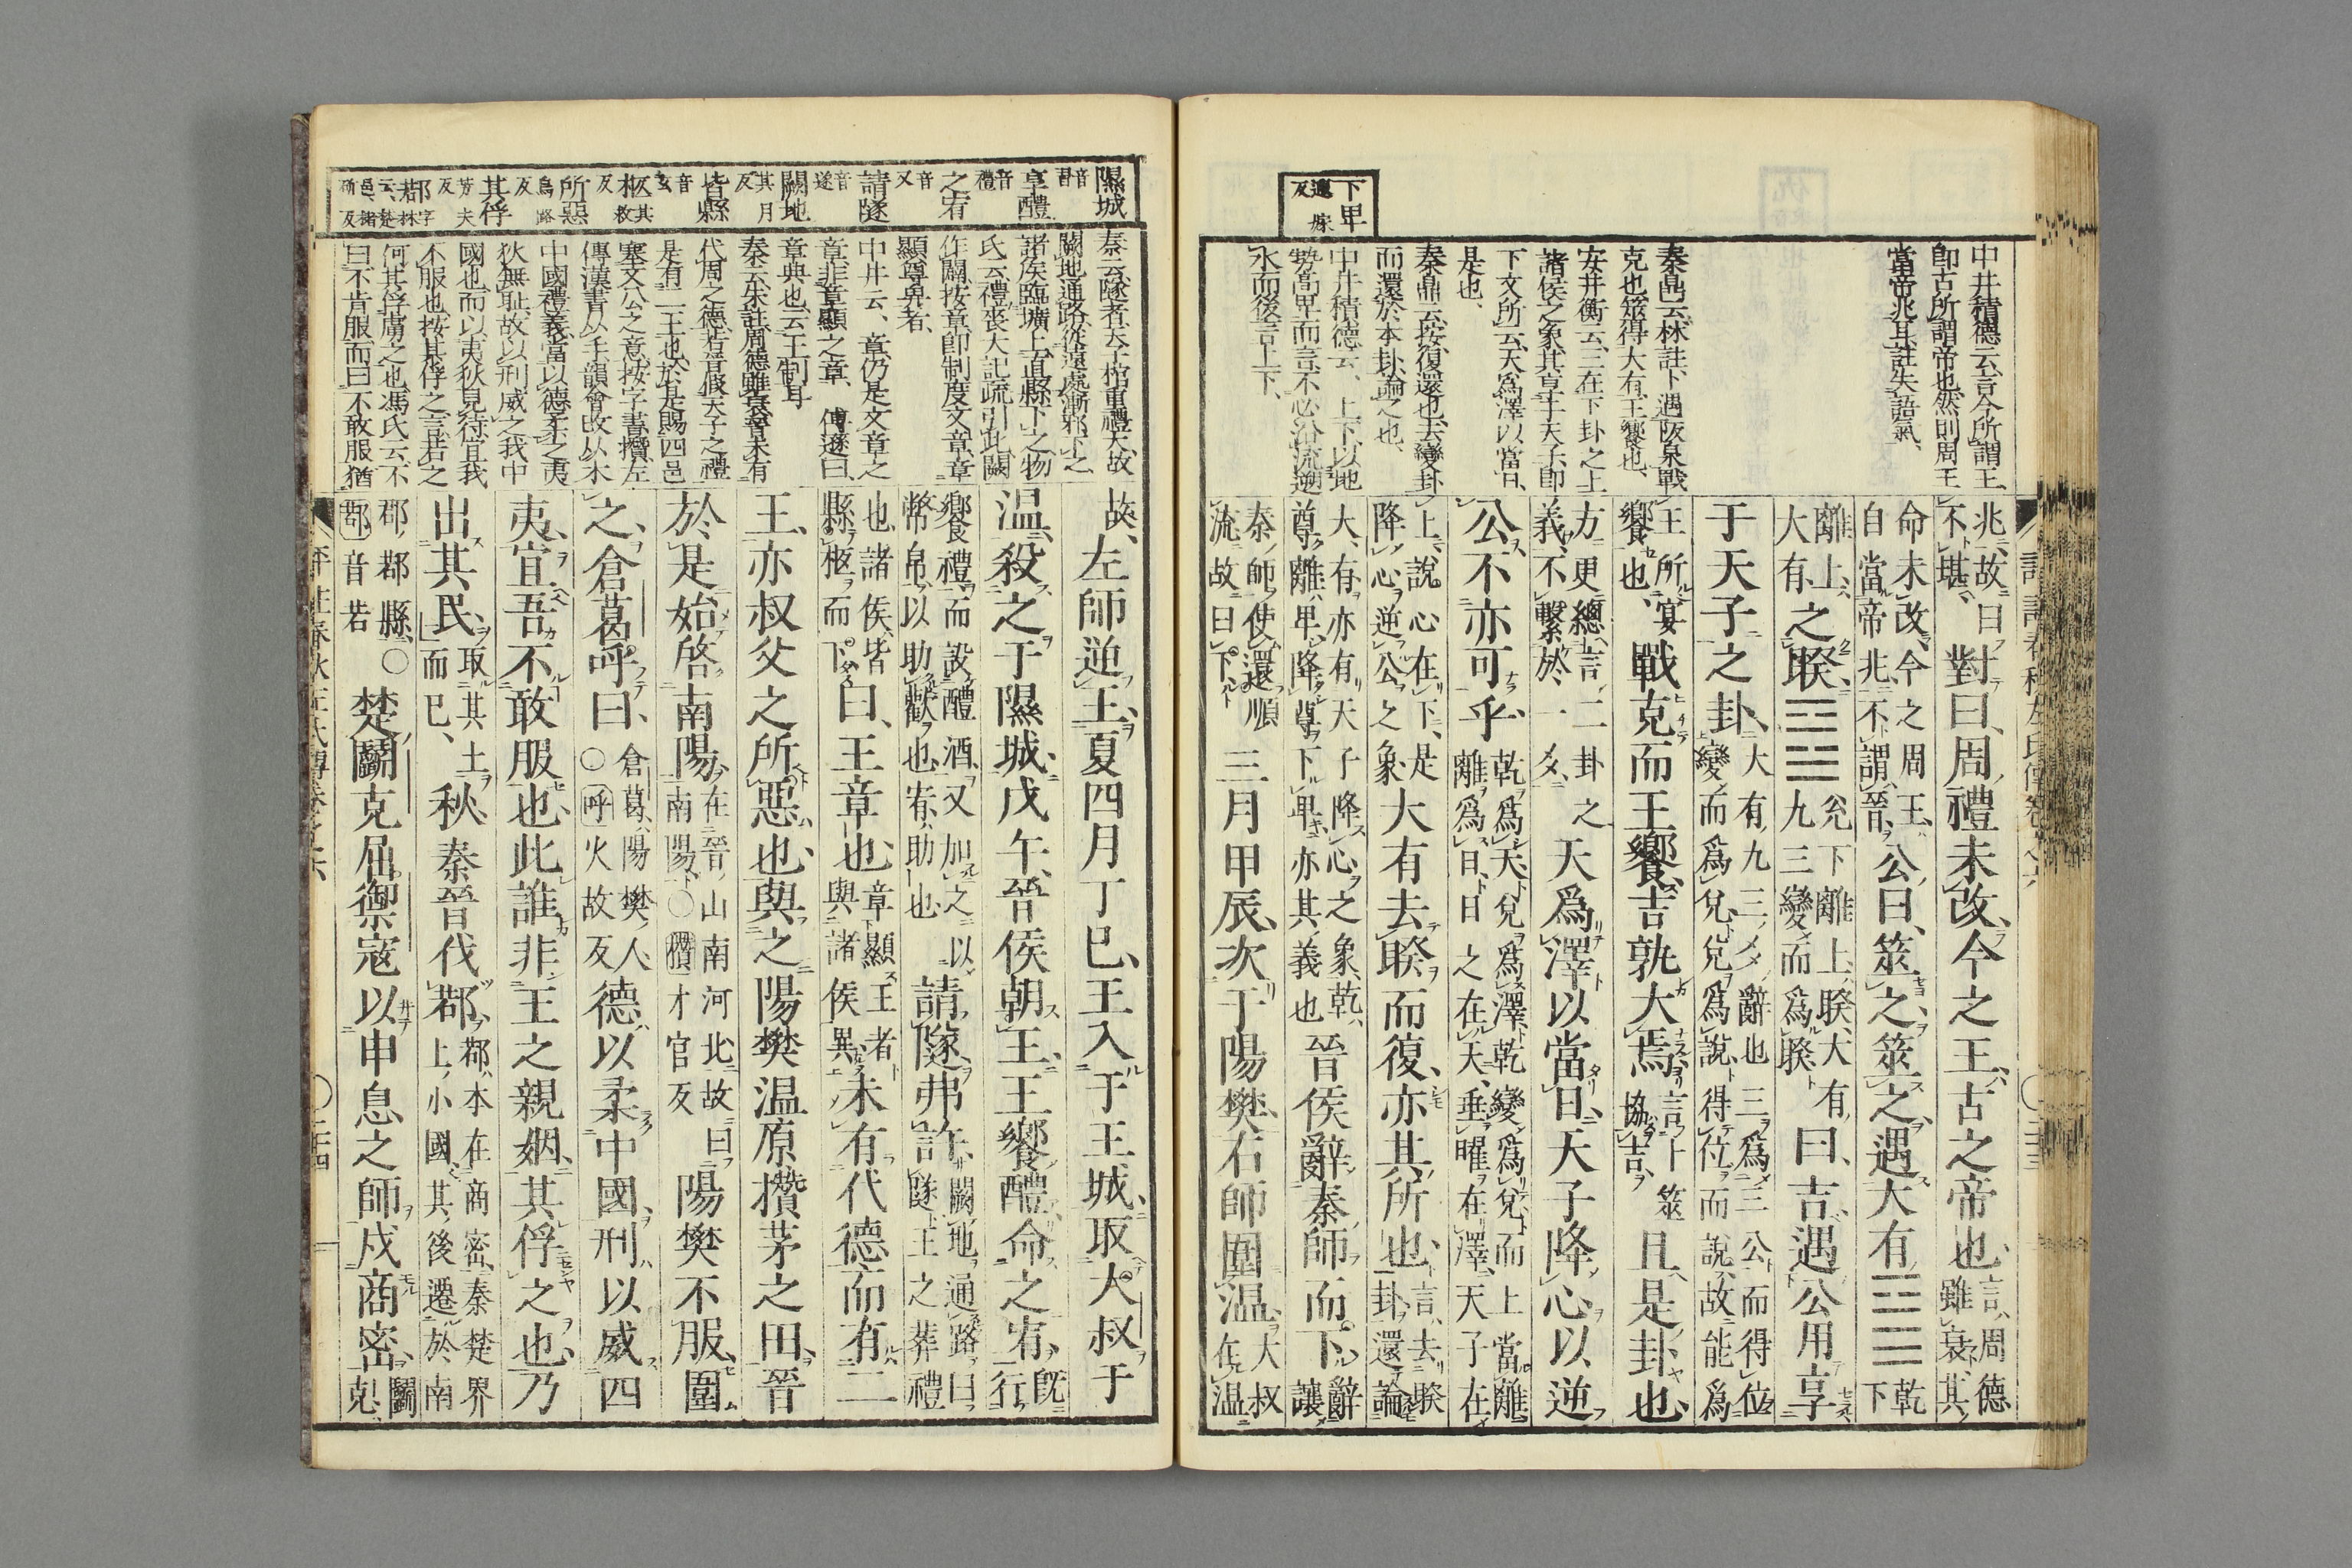 下卑
遐嫁
反
中井積德云言今所謂王
卽古所謂帝也然則周王
當帝兆其註失語氣
秦鼎云林註卜遇阪泉戰
克也筮得大有王饗也
安井衡云三在下卦之上
諸侯之象其享于天子卽
下文所云天爲澤以當日
是也
秦鼎云按復還也去變卦
而還於本卦論之也
中井積德云上下以地
勢高卑而言不必沿流遡
水而後言上下
兆故曰
不堪
對曰周禮未改今之王古之帝也
言周德
雖衰其
命未改今之周王
自當帝兆不謂晉
公曰筮之筮之遇大有䷍
乾
下
離上
大有
之睽䷥
兌下離上睽大有
九三變而爲睽
曰吉遇公用享
于天子之卦
大有九三爻辭也三爲三公而得位
變而爲兌兌爲說得位而說故能爲
王所宴
饗也
戰克而王饗吉孰大焉
言卜筮
協吉
且是卦也
方更總言二卦之
義不繫於一爻
天爲澤以當日天子降心以逆
公不亦可乎
乾爲天兌爲澤乾變爲兌而上當離
離爲日日之在天垂曜在澤天子在
上說心在下是
降心逆公之象
大有去睽而復亦其所也
言去睽
卦還論
大有亦有天子降心之象乾
尊離卑降尊下卑亦其義也
晉侯辭秦師而下
辭
讓
秦師使還順
流故曰下
三月甲辰次于陽樊右師圍溫
大叔
在溫
隰城
音
習
享醴
音
禮
之宥
音
又
請隧
音
遂
闕地
其月
反
皆縣
音
玄
柩
其救
反
所惡
烏路
反
其俘
芳夫
反
秦云隧者天子棺重禮大故
闕地通路從遠處漸邪下之
諸侯臨壙上直縣下之物
氏云禮喪大記疏引此闕
作闕按章卽制度文章章
顯尊卑者
中井云章仍是文章之
章非章顯之章 傅遜曰
章典也云王制耳
秦云朱註周德雖衰晉未有
代周之德若晉假天子之禮
是有二王也於是賜四邑
塞文公之意按字書攢左
傳漢書从手韻會改从木
中國禮義當以德柔之夷
狄無恥故以刑威之我中
國也而以夷狄見待宜我
不服也按其俘之言若之
何其俘虜之也馮氏云不
曰不肯服而曰不敢服猶
故左師逆王夏四月丁巳王入于王城取大叔于
溫殺之于隰城戊午晉侯朝王王饗醴命之宥
旣
行
饗禮而設醴酒又加之以
幣帛以助歡也宥助也
請隧弗許
闕地通路曰
隧王之葬禮
也諸侯皆
縣柩而下
曰王章也
章顯王者
與諸侯異
未有代德而有二
王亦叔父之所惡也與之陽樊溫原攢茅之田晉
於是始啓南陽
在晉山南河北故曰
南陽○攢才官反
陽樊不服圍
之倉葛呼曰
倉葛陽樊人
○呼火故反
德以柔中國刑以威四
夷宜吾不敢服也此誰非王之親姻其俘之也乃
出其民
取其土
而已
秋秦晉伐鄀
鄀本在商密秦楚界
上小國其後遷於南
郡鄀縣○
鄀音若
楚鬭克屈禦寇以申息之師戍商密
鬭
克